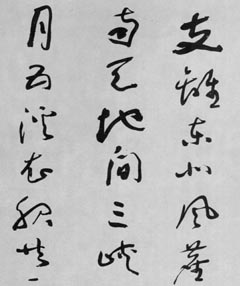 支離東北風塵
南天地間三峽
月五溪衣服共